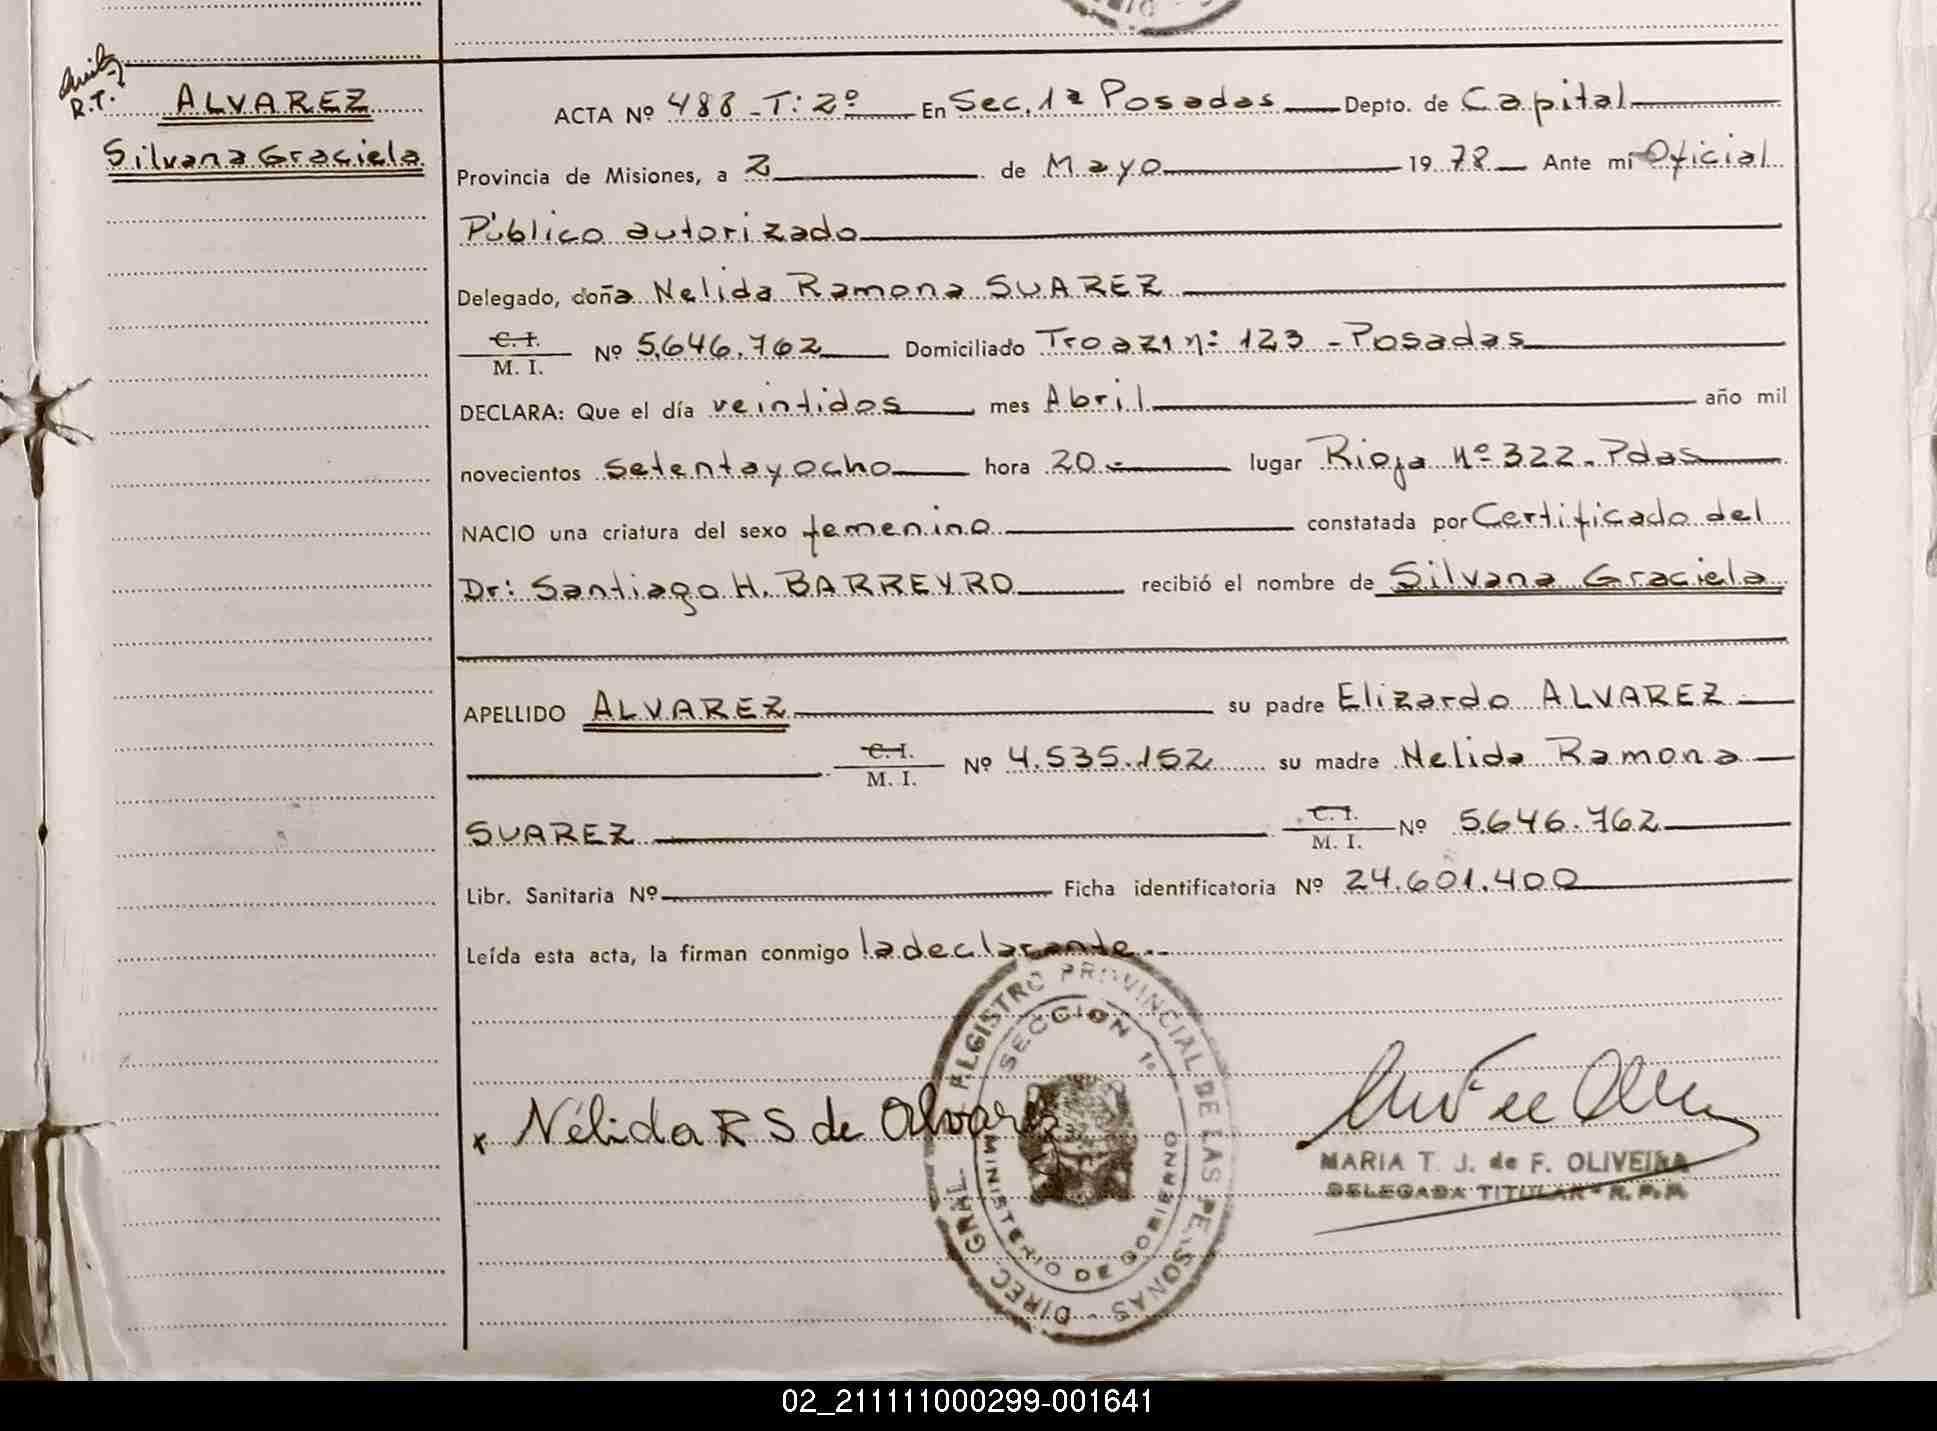 R.T.
ALVAREZ
Silvana Graciela
ACTA Nº 488 - T: 2º En Sec. 1ª Posadas Depto. de Capital
Provincia de Misiones, a 2 de Mayo 1978 Ante mí Oficial
Público autorizado
Delegado, doña Nelida Ramona SUAREZ
C. I.
M. I. Nº 5.646.762 Domiciliado Troazi nº 123 - Posadas
DECLARA: Que el día veintidos mes Abril año mil
novecientos setenta y ocho hora 20.- lugar Rioja Nº 322 - Pdas
NACIO una criatura del sexo femenino constatada por Certificado del
Dr: Santiago H. BARREYRO recibió el nombre de Silvana Graciela
APELLIDO ALVAREZ su padre Elizardo ALVAREZ
C. I.
M. I. Nº 4.535.152 su madre Nelida Ramona
SUAREZ C. I.
M. I. Nº 5.646.762
Libr. Sanitaria Nº Ficha identificatoria Nº 24.601.400
Leída esta acta, la firman conmigo la declarante.-
DIREC. GRAL. REGISTRO PROVINCIAL DE LAS PERSONAS -
SECCION 1º
MINISTERIO DE GOBIERNO
x Nélida R S de Alvarez
MARIA T. J. de F. OLIVEIRA
DELEGADA TITULAR - R. P. P.
02_211111000299-001641